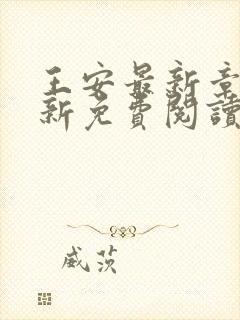 王安最新章
新免費閱讀
威茨